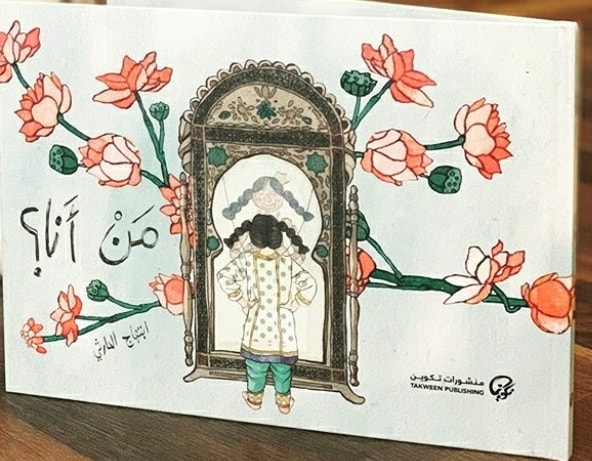 مَنْ أَنا؟
ابتهاج الحارثي
منشورات تكوين
TAKWEEN PUBLISHING
تكوين